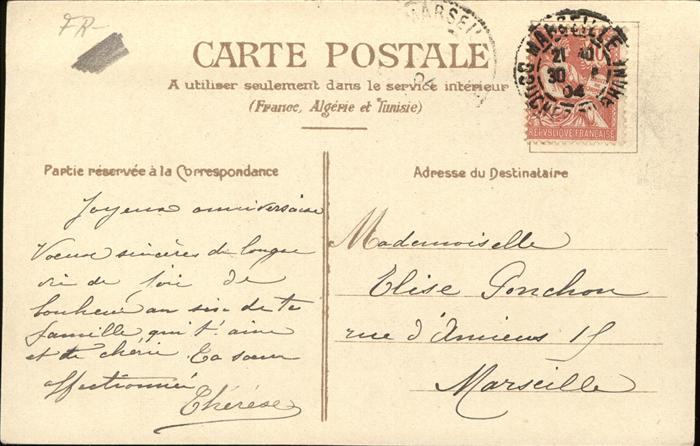 FR-
CARTE POSTALE
A utiliser seulement dans le service intérieur
(France, Algérie et Tunisie)
MARSEILLE
04
MARSEILLE
21
30
04
BOUCHES DU RHÔNE
10
RÉPUBLIQUE FRANÇAISE
Partie réservée à la Correspondance
Joyeux anniversaire
Voeux sincères de longue
vie de joie de
bonheur au sein de ta
famille qui t'aime
et te chérie. Ta soeur
affectionnée
Thérèse
Adresse du Destinataire
Mademoiselle
Elise Ponchon
rue d'Amiens 15
Marseille